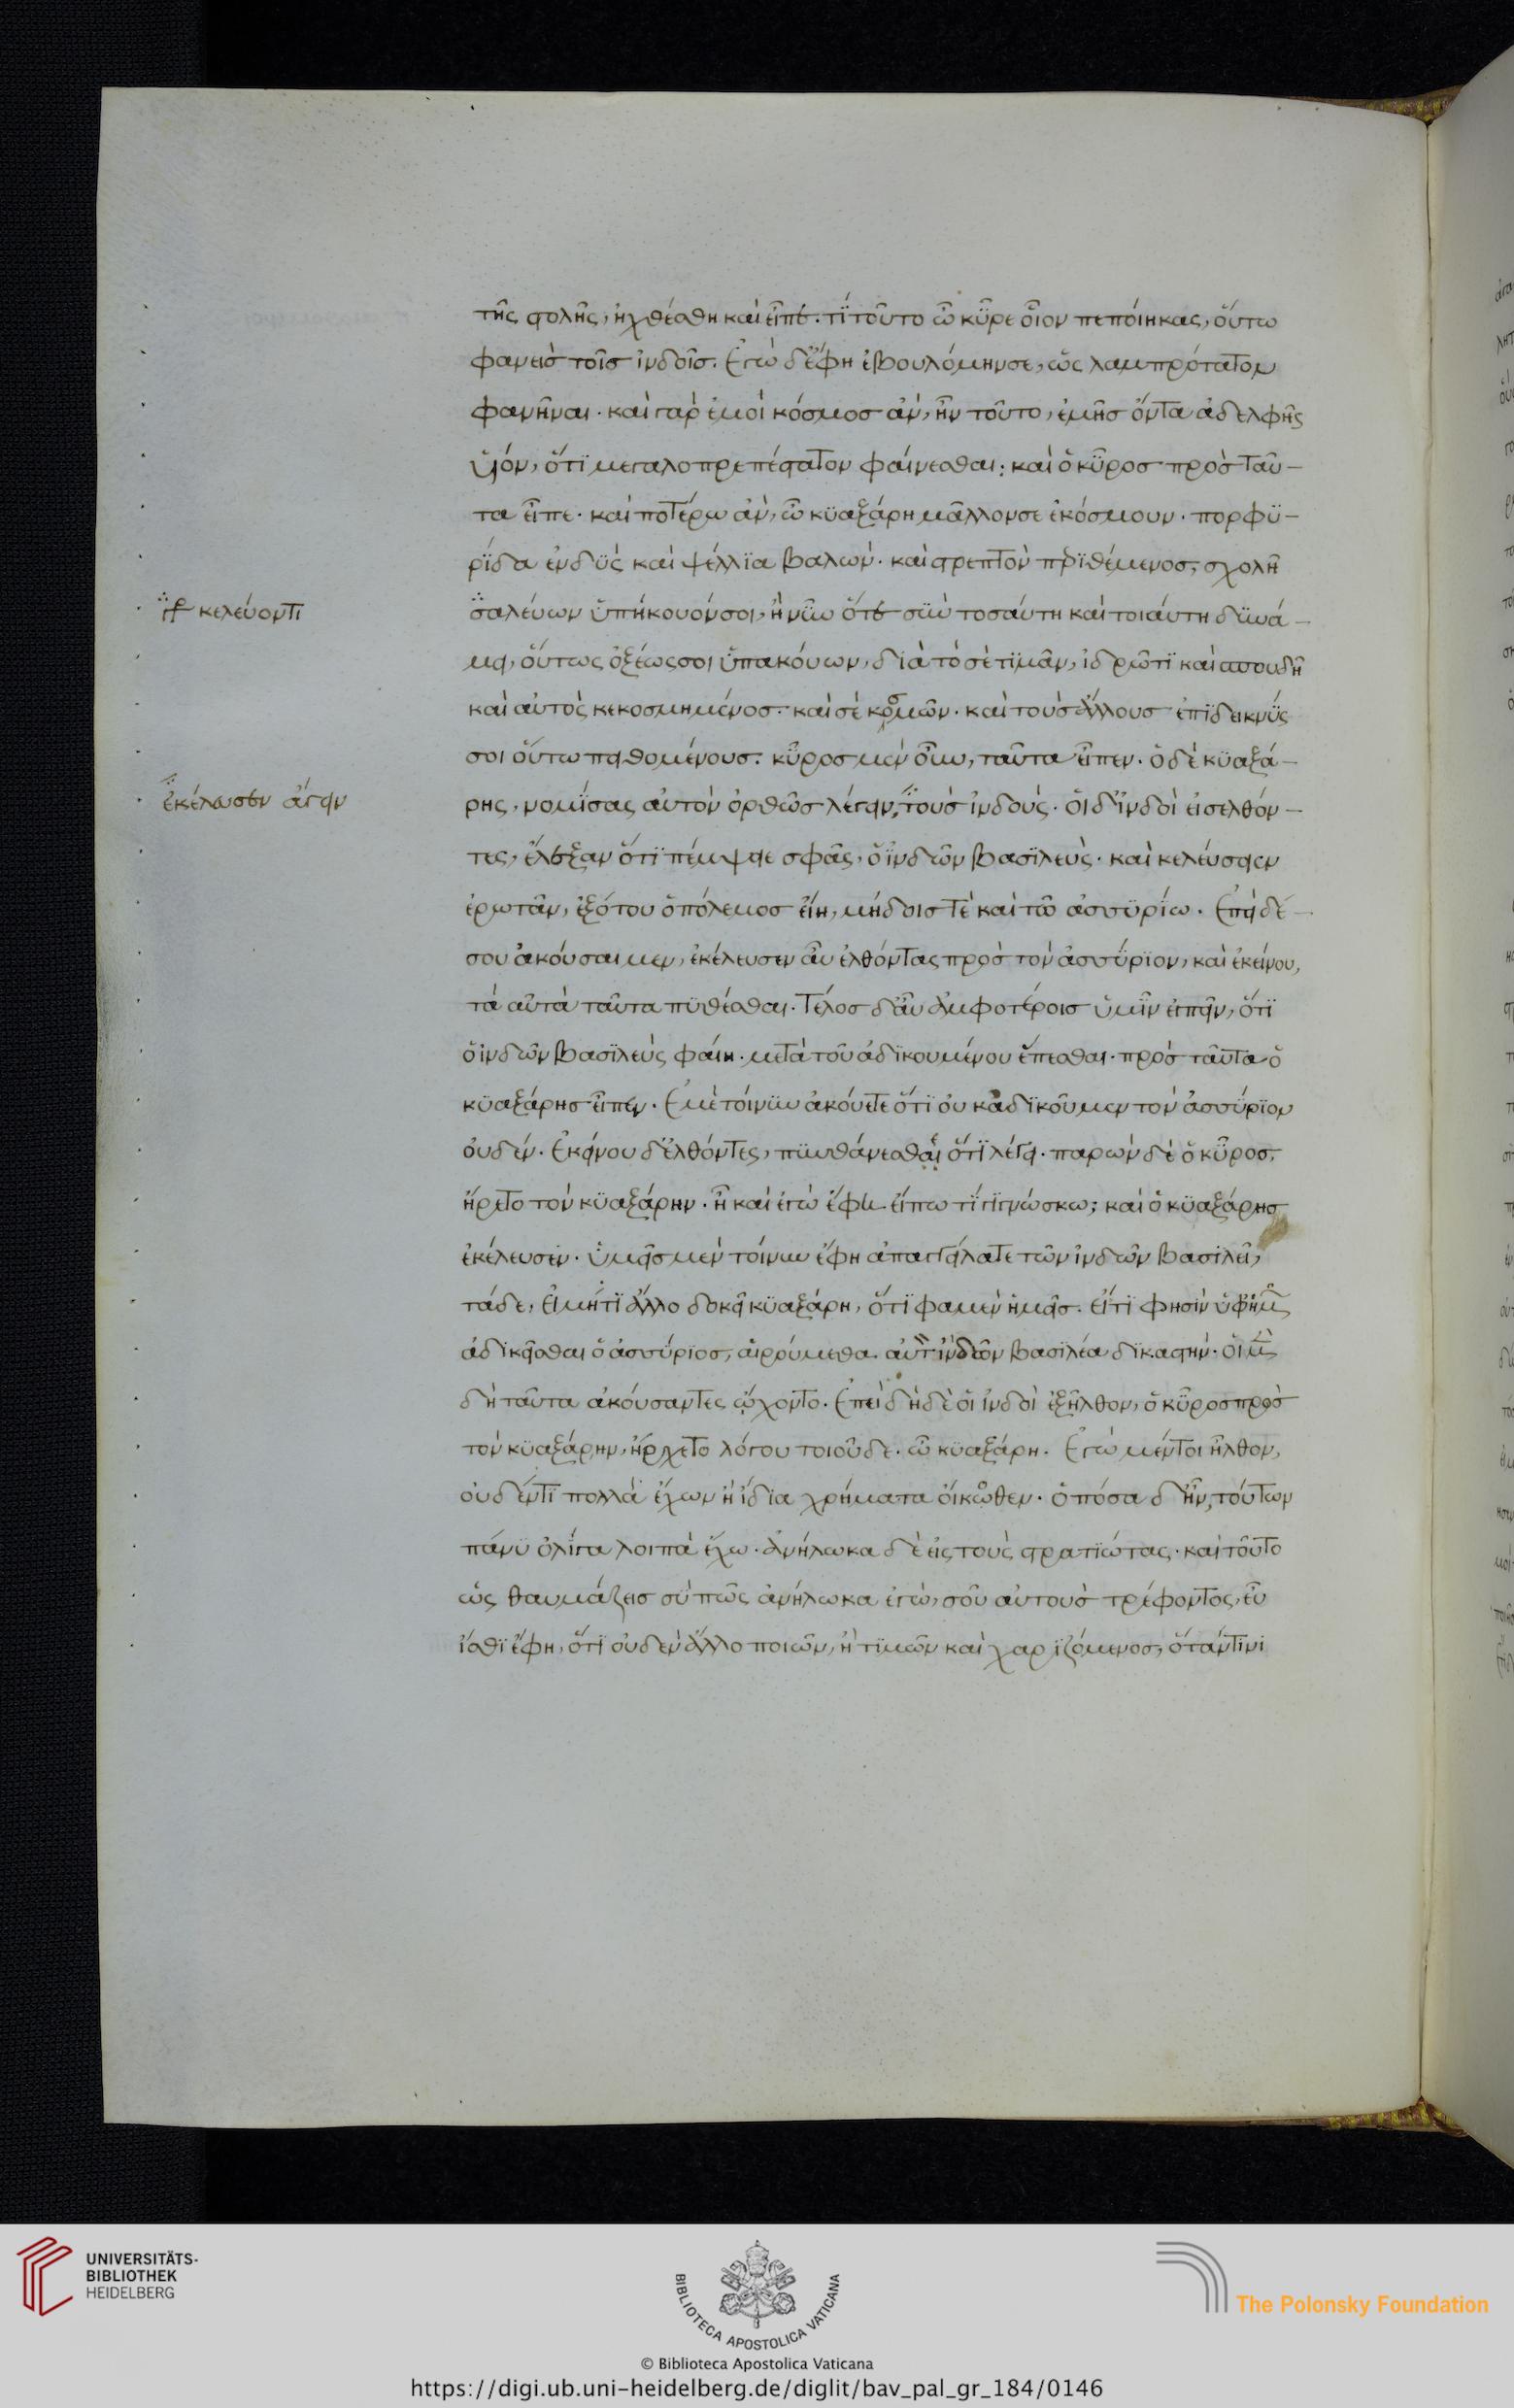 τῆς στολῆς, ἠχθέσθη καὶ εἶπε. τί τοῦτο ὦ κῦρε οἷον πεποίηκας, οὕτω
φανεὶς τοῖς ἰνδοῖς. Ἐγὼ δ' ἔφη ἐβουλόμην σε, ὡς λαμπρότατον
φανῆναι. καὶ γὰρ ἐμοὶ κόσμος ἂν, ἦν τοῦτο, ἐμῆς ὄντα ἀδελφῆς
ὑιόν, ὅτι μεγαλοπρεπέστατον φαίνεσθαι: καὶ ὁ κῦρος πρὸς ταῦ–
τα εἶπε. καὶ ποτέρω ἂν, ὦ κϋαξάρη μᾶλλον σε ἐκόσμουν. πορφϋ–
ρίδα ἐνδὺς καὶ ψέλλια βαλὼν. καὶ στρεπτὸν πριθέμενος, σχολῆ
σαλεύων ὑπήκουόν σοι, ἢ νῦν ὅτε σὺν τοσαύτη καὶ τοιαύτη δυνά–
γρ κελεύοντι
μει, οὕτως ὀξέως σοι ὑπακούων, διὰ τὸ σὲ τιμᾶν, ἱδρῶτι καὶ σπουδῆ
καὶ αὐτὸς κεκοσμημένος. καὶ σὲ κοσμῶν. καὶ τοὺς ἄλλους ἐπιδεικνύς
σοι οὕτω πειθομένους. κῦρος μὲν οὖν, ταῦτα εἶπεν. ὁ δὲ κϋαξά–
ρης, νομίσας αὐτὸν ὀρθῶς λέγειν, τοὺς ἰνδούς. οἱ δ' ἰνδοὶ εἰσελθόν–
ἐκέλευσεν ἄγειν
τες, ἔλεξαν ὅτι πέμψειε σφᾶς, ὁ ἰνδῶν βασιλεὺς. καὶ κελεύσειεν
ἐρωτᾶν, ἐξότου ὁ πόλεμος εἴη, μήδοις τὲ καὶ τῶ ἀσσυρίω. Ἐπεὶ δέ
σου ἀκούσαιμεν, ἐκέλευσεν αὖ ἐλθόντας πρὸς τὸν ἀσσύριον, καὶ ἐκείνου,
τὰ αὐτὰ ταῦτα πυθέσθαι. Τέλος δ' αὖ ἀμφοτέροις ὑμῖν εἰπεῖν, ὅτι
ὁ ἰνδῶν βασιλεὺς φαίη. μετὰ τοῦ ἀδικουμένου ἕπεσθαι. πρὸς ταῦτα ὁ
κϋαξάρης εἶπεν. Ἐμὲ τοίνυν ἀκούετε ὅτι οὐκ ἀδικοῦμεν τὸν ἀσσύριον
οὐδέν. Ἐκείνου δ' ἐλθόντες, πυνθάνεσθαι ὅτι λέγει. παρὼν δὲ ὁ κῦρος,
ἤρετο τὸν κϋαξάρην. ἦ καὶ ἐγὼ ἔφη εἴπω τί γιγνώσκω; καὶ ὁ κϋαξάρης
ἐκέλευσεν. ὑμεῖς μὲν τοίνυν ἔφη ἀπαγγείλατε τῶν ἰνδῶν βασιλεῖ,
τάδε, εἰ μή τι ἄλλο δοκεῖ κϋαξάρη, ὅτι φαμὲν ἡμεῖς. εἴ τι φησὶν ὑφ' ἡμ
ἀδικεῖσθαι ὁ ἀσσύριος, αἱρούμεθα αὐτ ἰνδῶν βασιλέα δικαστήν. οἱ μ
δὴ ταῦτα ἀκούσαντες ᾤχοντο. Ἐπεὶ δὴ δὲ οἱ ἰνδοὶ ἐξῆλθον, ὁ κῦρος πρὸς
τὸν κϋαξάρην, ἤρχετο λόγου τοιοῦδε. ὦ κϋαξάρη. Ἐγὼ μέντοι ἦλθον,
οὐδέν τι πολλὰ ἔχων ἢ ἴδια χρήματα οἴκωθεν. ὁπόσα δ' ἦν, τούτων
πάνυ ὀλίγα λοιπὰ ἔχω. ἀνήλωκα δὲ εἰς τοὺς στρατιώτας. καὶ τοῦτο
ὡς θαυμάζεις σὺ πῶς ἀνήλωκα ἐγὼ, σοῦ αὐτοὺς τρέφοντος, εὖ
ἴσθι ἔφη, ὅτι οὐδὲν ἄλλο ποιῶν, ἢ τιμῶν καὶ χαριζόμενος, ὅταν τινὶ
UNIVERSITÄTS-
BIBLIOTHEK
HEIDELBERG
BIBLIOTECA APOSTOLICA VATICANA
The Polonsky Foundation
© Biblioteca Apostolica Vaticana
https://digi.ub.uni-heidelberg.de/diglit/bav_pal_gr_184/0146